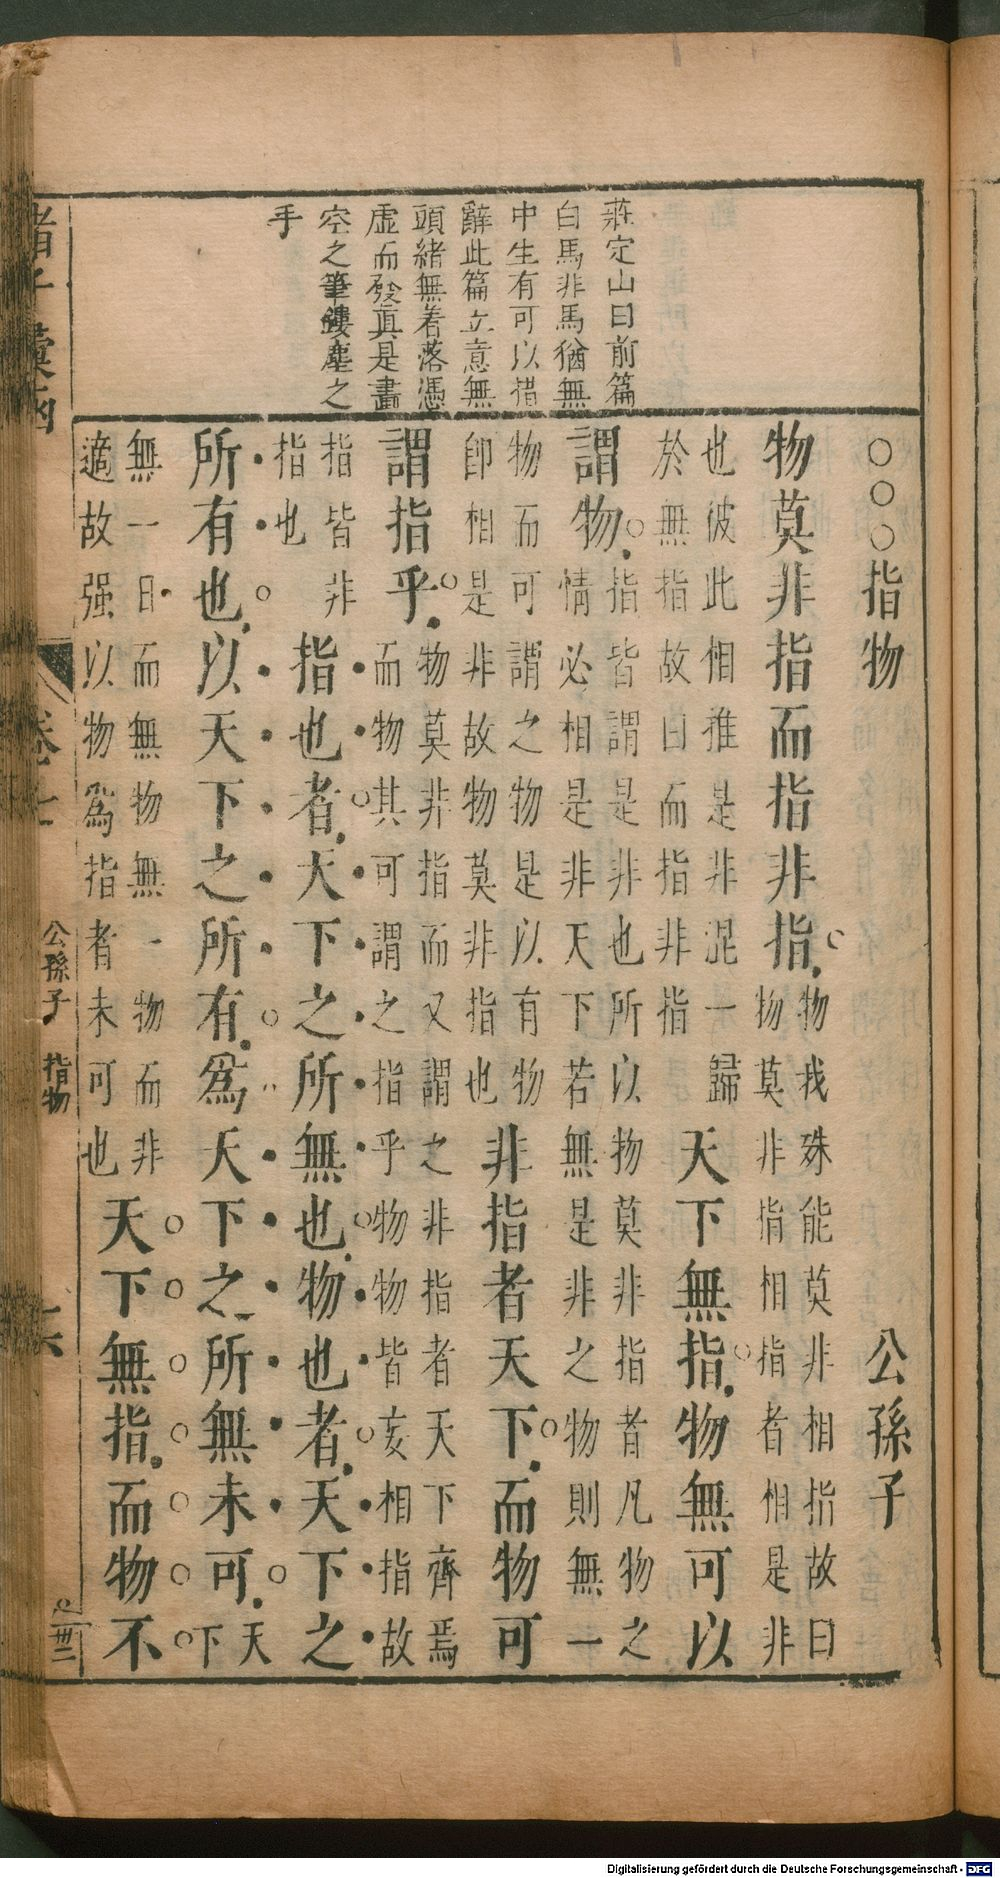 莊定山曰前篇
白馬非馬猶無
中生有可以措
辭此篇立意無
頭緒無着落憑
虛而發眞是畫
空之筆鏤塵之
手
○○○指物 公孫子
物莫非指而指非指。物我殊能莫非相指故曰
物莫非指相指者相是非
也彼此相推是非混一歸
於無指故曰而指非指天下無指。物無可以
謂物。指皆謂是非也所以物莫非指者凡物之
情必相是非天下若無是非之物則無一
物而可謂之物是以有物
卽相是非故物莫非指也非指者天下。而物可
謂指乎。物莫非指而又謂之非指者天下齊焉
而物其可謂之指乎物物皆妄相指故
指皆非
指也指也者。天下之所無也。物也者。天下之
所有也。以天下之所有。爲天下之所無未可。天
下
無一日而無物無一物而非
適故强以物爲指者未可也天下無指。而物不
諸子彙函
卷七
公孫子 指物
六
卅二
Digitalisierung gefördert durch die Deutsche Forschungsgemeinschaft - DFG